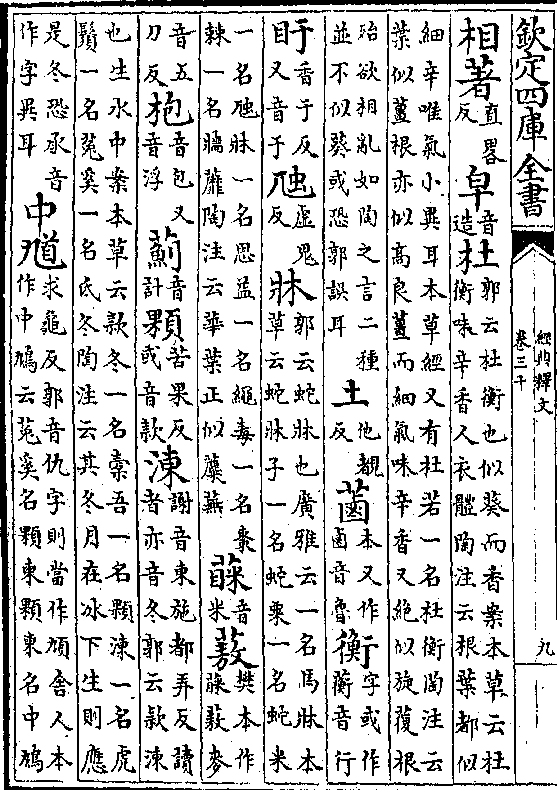 欽定四庫全書
經典釋文
卷三十
九
相著直畧反皁音造杜郭云杜衡也似葵而香案本草云杜衡味辛香人衣體陶注云根葉都似
細辛唯氣小異耳本草經又有杜若一名杜衡陶注云葉似薑根亦似高良薑而細氣味辛香又絶似旋葍根
殆欲相亂如陶之言二種並不似葵或恐郭誤耳土他覩反蓾本又作鹵音魯衡字或作蘅音行
盱香于反又音于虺虚鬼反牀郭云蛇牀也廣雅云一名馬牀本草云蛇牀子一名蛇粟一名蛇米
一名虺牀一名思益一名繩毒一名棗棘一名牆蘼陶注云華葉正似蘼蕪蔝音米蔜樊本作蔝蔜麥
音五刀反枹音包又音浮薊音計顆苦果反或音款涷謝音東施都弄反讀者亦音冬郭云款涷
也生水中案本草云款冬一名橐吾一名顆涷一名虎鬚一名菟奚一名氐冬陶注云其冬月在冰下生則應
是冬恐承音作字異耳中馗求龜反郭音仇字則當作頄舍人本作中鳩云菟奚名顆東顆東名中鳩